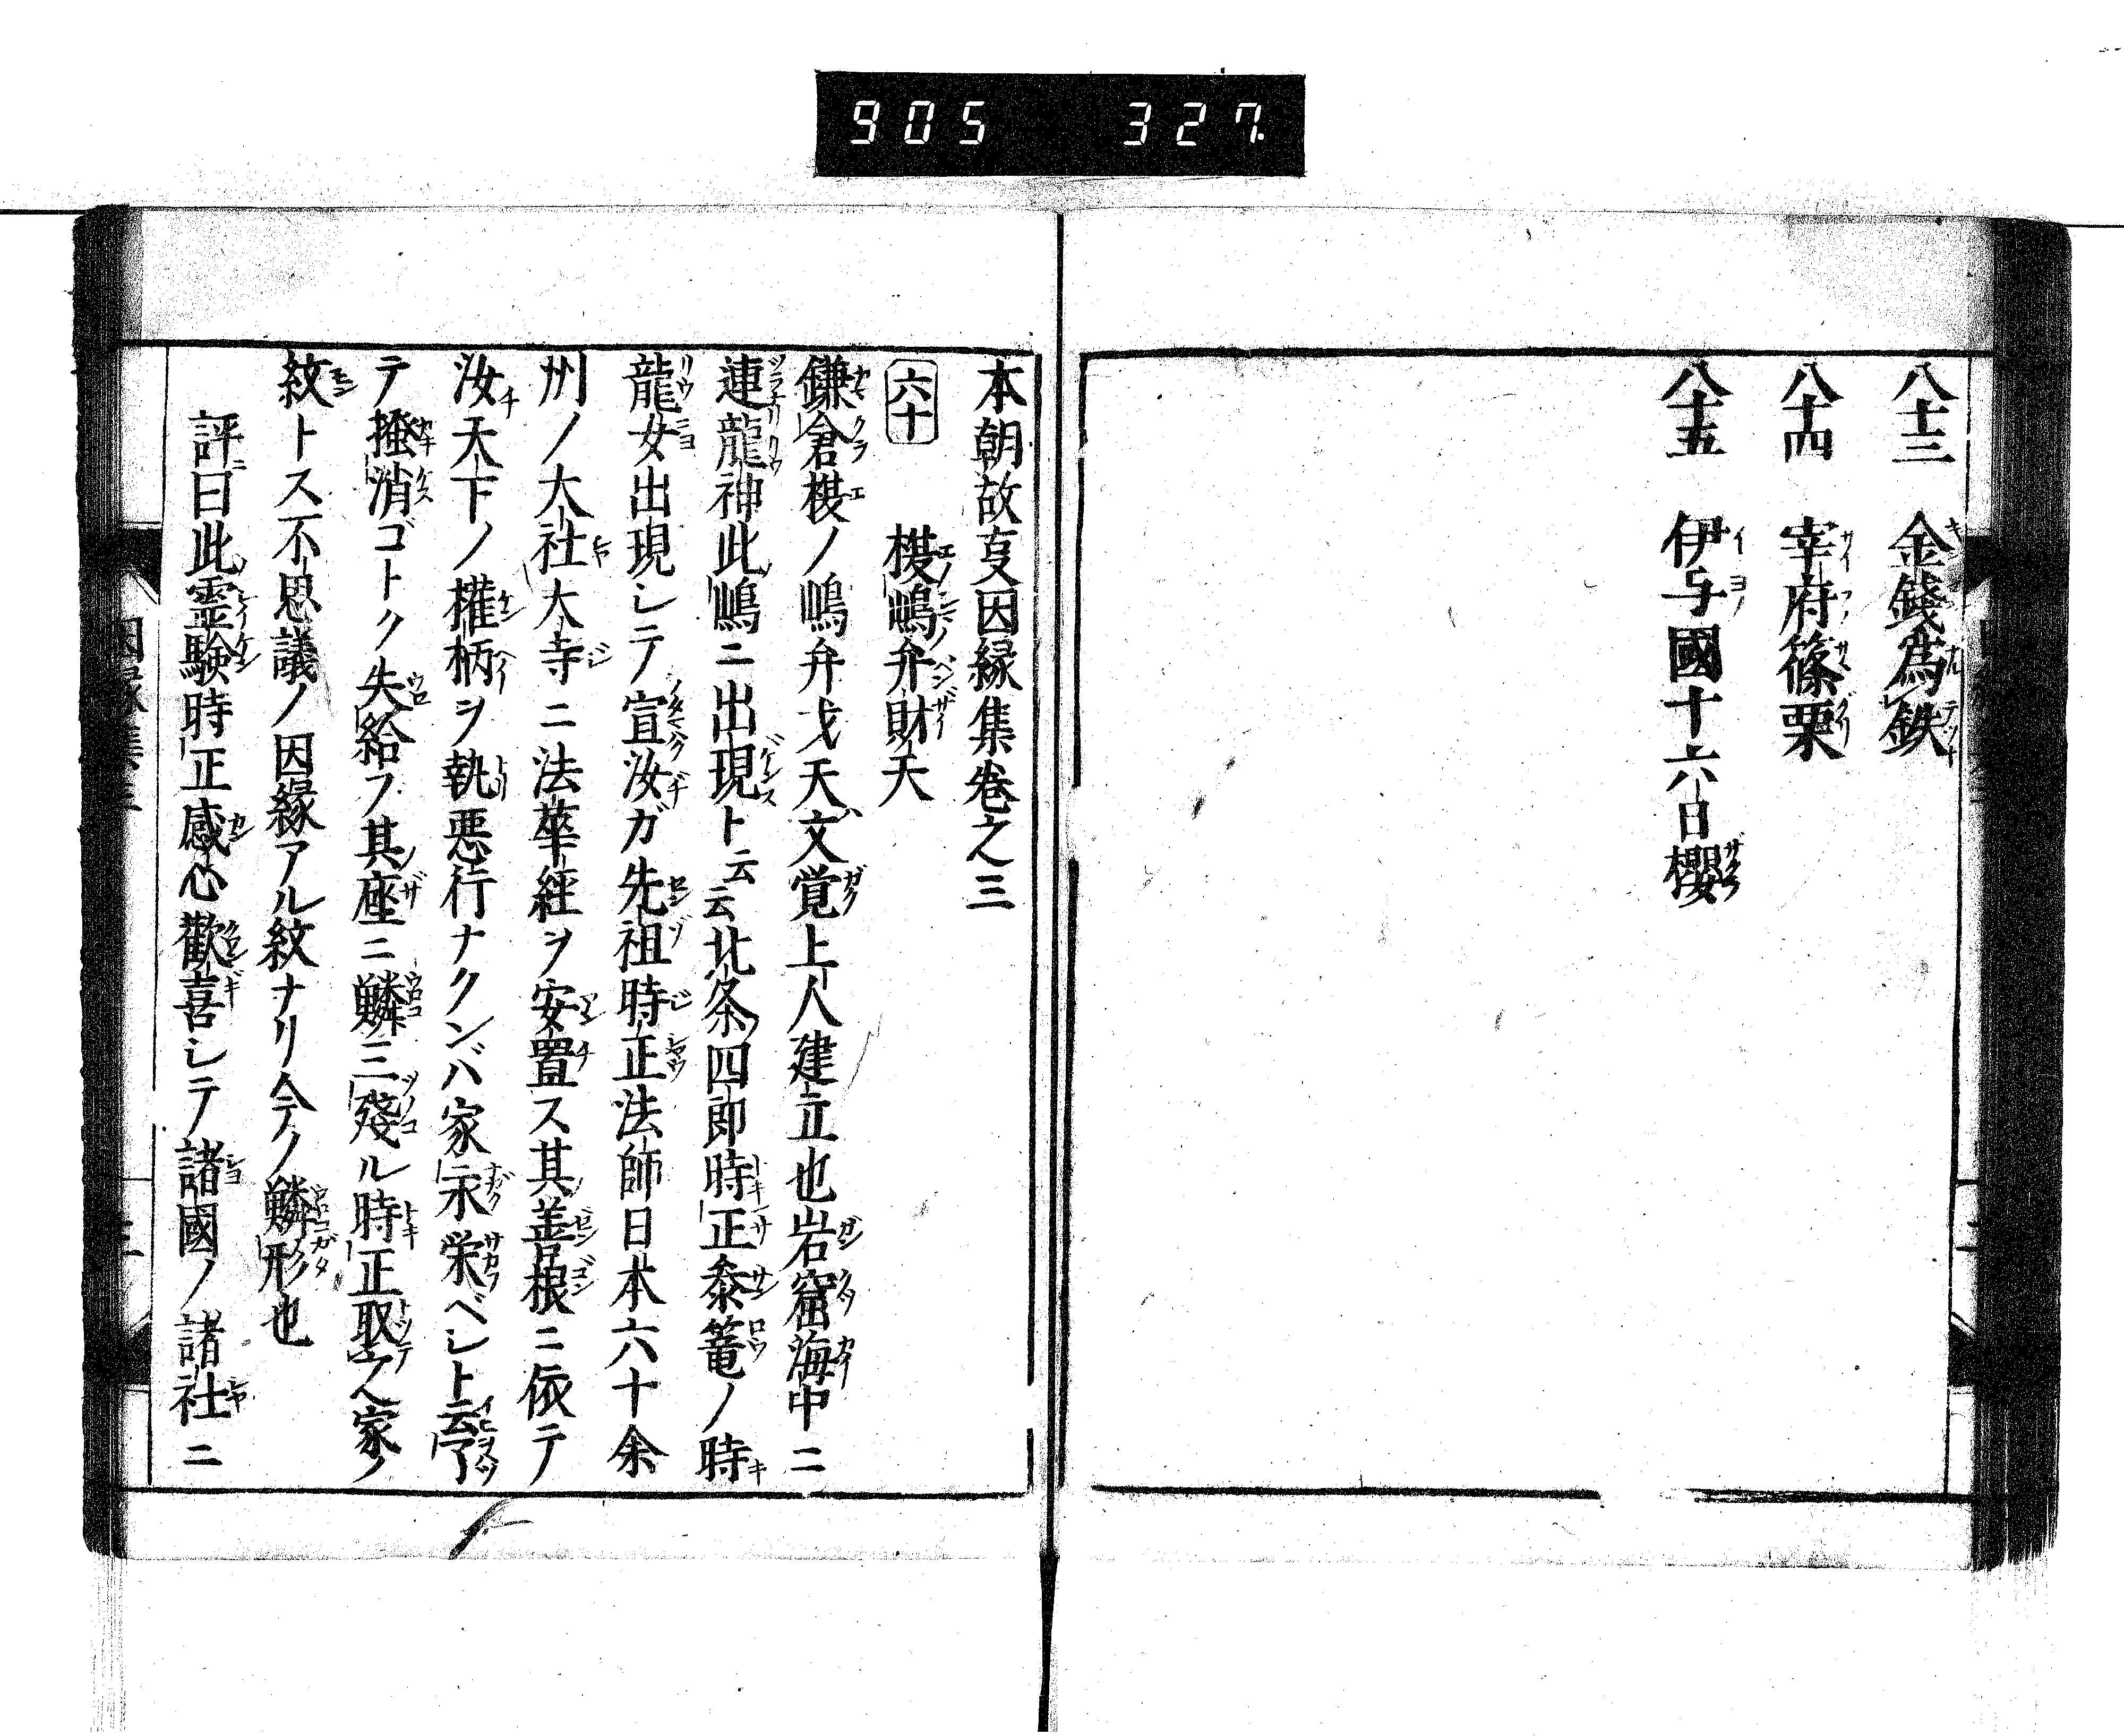 905 327
八十三 金錢為鉄
八十四 宰府篠栗
八十五 伊与國十六日櫻
本朝故亊因縁集巻之三
六十 榎嶋弁財天
鎌倉榎ノ嶋弁戈天文覚上人建立也岩窟海中ニ
連龍神此嶋ニ出現ト云云北条四郎時正参篭ノ時
龍女出現シテ宣汝ガ先祖時正法師日本六十余
州ノ大社大寺ニ法華経ヲ安置ス其善根ニ依テ
汝天下ノ權柄ヲ執悪行ナクンバ家永栄ベシト云了
テ掻消ゴトク失給フ其座ニ鱗三殘ル時正取テ家ノ
紋トス不思議ノ因縁アル紋ナリ今ノ鱗形也
評曰此霊験時正感心歡喜シテ諸國ノ諸社ニ